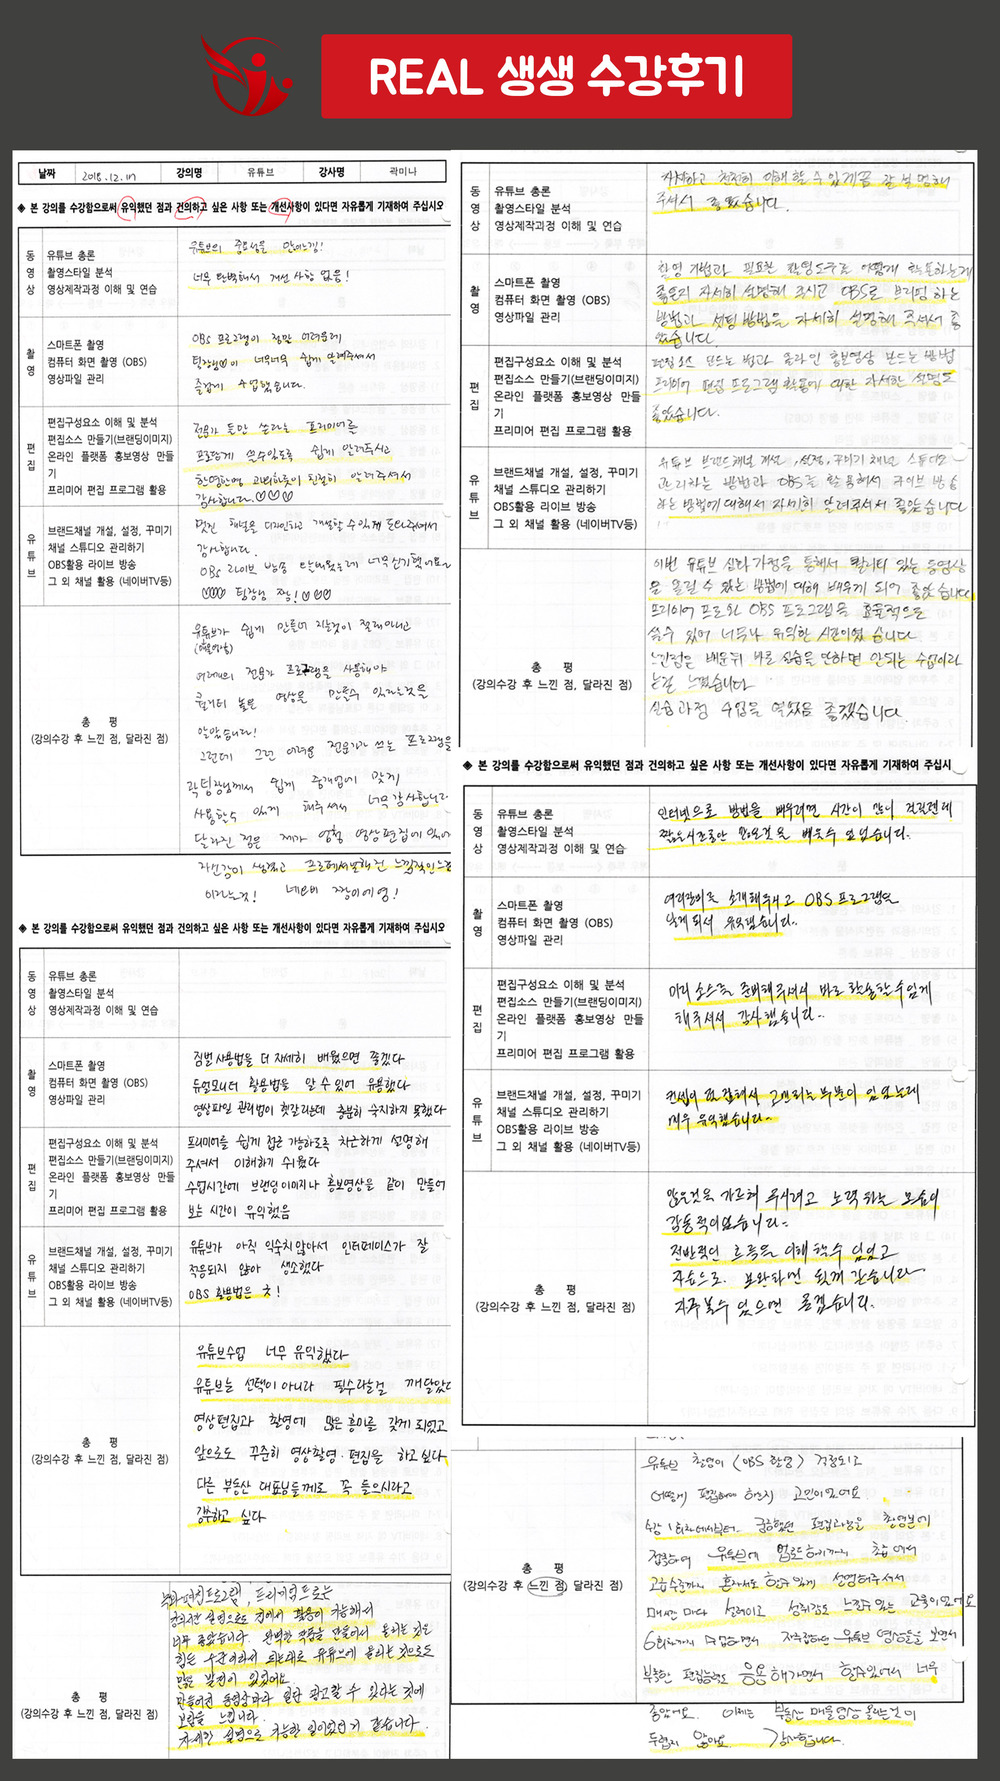 REAL 생생 수강후기
날짜 2018.12.17 강의명 유튜브 강사명 곽미나
◈ 본 강의를 수강함으로써 유익했던 점과 건의하고 싶은 사항 또는 개선사항이 있다면 자유롭게 기재하여 주십시오
동영상
유튜브 총론
촬영스타일 분석
영상제작과정 이해 및 연습
유튜브의 중요성을 알려는김!
너무 완벽해서 개선 사항 없음!
촬영
스마트폰 촬영
컴퓨터 화면 촬영 (OBS)
영상파일 관리
OBS 프로그램이 정말 어려운데
팀장님이 너무너무 쉽게 알려주셔서
즐겁게 수업했습니다.
편집
편집구성요소 이해 및 분석
편집소스 만들기(브랜딩이미지)
온라인 플랫폼 홍보영상 만들기
프리미어 편집 프로그램 활용
전문가 들만 쓴다는 프리미어를
프로답게 쓸수있도록 쉽게 알려주시고
한명한명 과외하듯이 친절히 알려주셔서
감사합니다 ♡♡♡
유튜브
브랜드채널 개설, 설정, 꾸미기
채널 스튜디오 관리하기
OBS활용 라이브 방송
그 외 채널 활용 (네이버TV등)
멋진 채널을 디자인하고 개설할수있게 도와주셔서
감사합니다.
OBS 라이브 방송 안해봤는데 너무신기했어요
♡♡♡ 팀장님 짱!♡♡♡
총 평
(강의수강 후 느낀 점, 달라진 점)
유튜브가 쉽게 만들어 지는것이 절대아니고
여러개의 전문가 프로그램을 사용해야
퀄리티 높은 영상을 만들수 있다는것을
알았습니다!
그런데 그런 어려운 전문가가 쓰는 프로그램을
곽팀장님께서 쉽게 중개업에 맞게
사용할수 있게 해주셔서 너무감사합니다
달라진 점은 제가 영헐 영상편집에 있어
자신감이 생겼고 프로페셔널해진 느낌적인느낌
이라는것! 네오비 짱이에영!
동영상
유튜브 총론
촬영스타일 분석
영상제작과정 이해 및 연습
자세하고 천천히 이해할 수 있게끔 잘 설명해
주셔서 좋았습니다.
촬영
스마트폰 촬영
컴퓨터 화면 촬영 (OBS)
영상파일 관리
촬영 기법과 필요한 촬영도구로 어떻게 활용하는게
좋은지 자세히 설명해 주시고 OBS로 브리핑 하는
방법과 셋팅 방법을 자세히 설명해 주셔서 좋
았습니다.
편집
편집구성요소 이해 및 분석
편집소스 만들기(브랜딩이미지)
온라인 플랫폼 홍보영상 만들기
프리미어 편집 프로그램 활용
편집소스 만드는 법과 온라인 홍보영상 만드는 방법
프리미어 편집 프로그램 활용에 대한 자세한 설명도
좋았습니다.
유튜브
브랜드채널 개설, 설정, 꾸미기
채널 스튜디오 관리하기
OBS활용 라이브 방송
그 외 채널 활용 (네이버TV등)
유튜브 브랜드채널 개설, 설정, 꾸미기 채널 스튜디오
관리하는 방법과 OBS를 활용해서 라이브 방송
하는 방법에 대해서 자세히 알려주셔서 좋았습니다
총 평
(강의수강 후 느낀 점, 달라진 점)
이번 유튜브 심화 과정을 통해서 퀄리티 있는 동영상
을 올릴 수 있는 방법에 대해 배우게 되어 좋았습니다
프리미어 프로와 OBS 프로그램을 효율적으로
쓸수 있어 너무나 유익한 시간이였습니다
느낀점은 배운뒤 바로 실습을 안하면 안되는 수업이라
는걸 느꼈습니다
실습과정 수업을 열었음 좋겠습니다.
◈ 본 강의를 수강함으로써 유익했던 점과 건의하고 싶은 사항 또는 개선사항이 있다면 자유롭게 기재하여 주십시
동영상
유튜브 총론
촬영스타일 분석
영상제작과정 이해 및 연습
인터넷으로 방법을 배우려면 시간이 많이 걸릴텐데
짧은시간동안 많은것을 배울수 있었습니다.
촬영
스마트폰 촬영
컴퓨터 화면 촬영 (OBS)
영상파일 관리
여러장비를 소개해주시고 OBS프로그램을
알게되서 유익했습니다..
편집
편집구성요소 이해 및 분석
편집소스 만들기(브랜딩이미지)
온라인 플랫폼 홍보영상 만들기
프리미어 편집 프로그램 활용
미리 소스를 준비해주셔서 바로 활용할수있게
해주셔서 감사했습니다..
유튜브
브랜드채널 개설, 설정, 꾸미기
채널 스튜디오 관리하기
OBS활용 라이브 방송
그 외 채널 활용 (네이버TV등)
고민되는부분이 있었는데
매우 유익했습니다.
총 평
(강의수강 후 느낀 점, 달라진 점)
많은것을 가르쳐 주시려고 노력하는 모습이
감동적이었습니다..
전반적인 흐름을 이해 할수 있었고
복습으로 보완하면 될것 같습니다
자주볼수 있으면 좋겠습니다.
◈ 본 강의를 수강함으로써 유익했던 점과 건의하고 싶은 사항 또는 개선사항이 있다면 자유롭게 기재하여 주십시오
동영상
유튜브 총론
촬영스타일 분석
영상제작과정 이해 및 연습
촬영
스마트폰 촬영
컴퓨터 화면 촬영 (OBS)
영상파일 관리
짐벌사용법을 더 자세히 배웠으면 좋겠다
듀얼모니터 활용법을 알 수 있어 유용했다
영상파일 관리법이 헷갈리는데 충분히 숙지하지 못했다
편집
편집구성요소 이해 및 분석
편집소스 만들기(브랜딩이미지)
온라인 플랫폼 홍보영상 만들기
프리미어 편집 프로그램 활용
프리미어를 쉽게 접근 가능하도록 차근하게 설명해
주셔서 이해하기 쉬웠다
수업시간에 브랜딩이미지나 홍보영상을 같이 만들어
보는 시간이 유익했음
유튜브
브랜드채널 개설, 설정, 꾸미기
채널 스튜디오 관리하기
OBS활용 라이브 방송
그 외 채널 활용 (네이버TV등)
유튜브가 아직 익숙치않아서 인터페이스가 잘
적응되지 않아 생소했다
OBS 활용법은 굿!
총 평
(강의수강 후 느낀 점, 달라진 점)
유튜브수업 너무 유익했다
유튜브는 선택이 아니라 필수라는걸 깨달았다
영상편집과 촬영에 많은 흥미를 갖게 되었고
앞으로도 꾸준히 영상촬영·편집을 하고싶다
다른 부동산 대표님들께도 꼭 들으시라고
강추하고 싶다
총 평
(강의수강 후 느낀 점, 달라진 점)
유튜브 촬영이 (OBS 촬영) 걱정되고
어떻게 편집해야 하는지 고민이었어요
수강 1회차에서부터 궁금했던 편집과정을 촬영분에
접목하여 유튜브에 업로드하기까지 초급에서
고급수준까지 혼자서도 할수있게 설명해주셔서
매번 마다 설레이고 성취감도 느낄수있는 교육이었어요
6회차까지 수업하면서 제작하는 유튜브 영상들을 보면서
부족한 편집능력도 응용해가면서 할수있어서 너무
좋았어요. 이제는 부동산 매물영상 올리는것이
두렵지 않아요. 감사합니다.
총 평
(강의수강 후 느낀 점, 달라진 점)
편집프로그램, 프리미엄프로는
설명으로도 집에서 활용이 가능해서
너무 좋았습니다. 완벽한 작품을 만들어서 올리는 것은
힘든 수준이라서 되는대로 유튜브에 올리는것으로도
많은 발전이 있었어요
만들어진 동영상마다 일단 광고할 수 있다는 것에
보람을 느낍니다.
자세한 설명으로 가능한 일이었던거 같습니다.